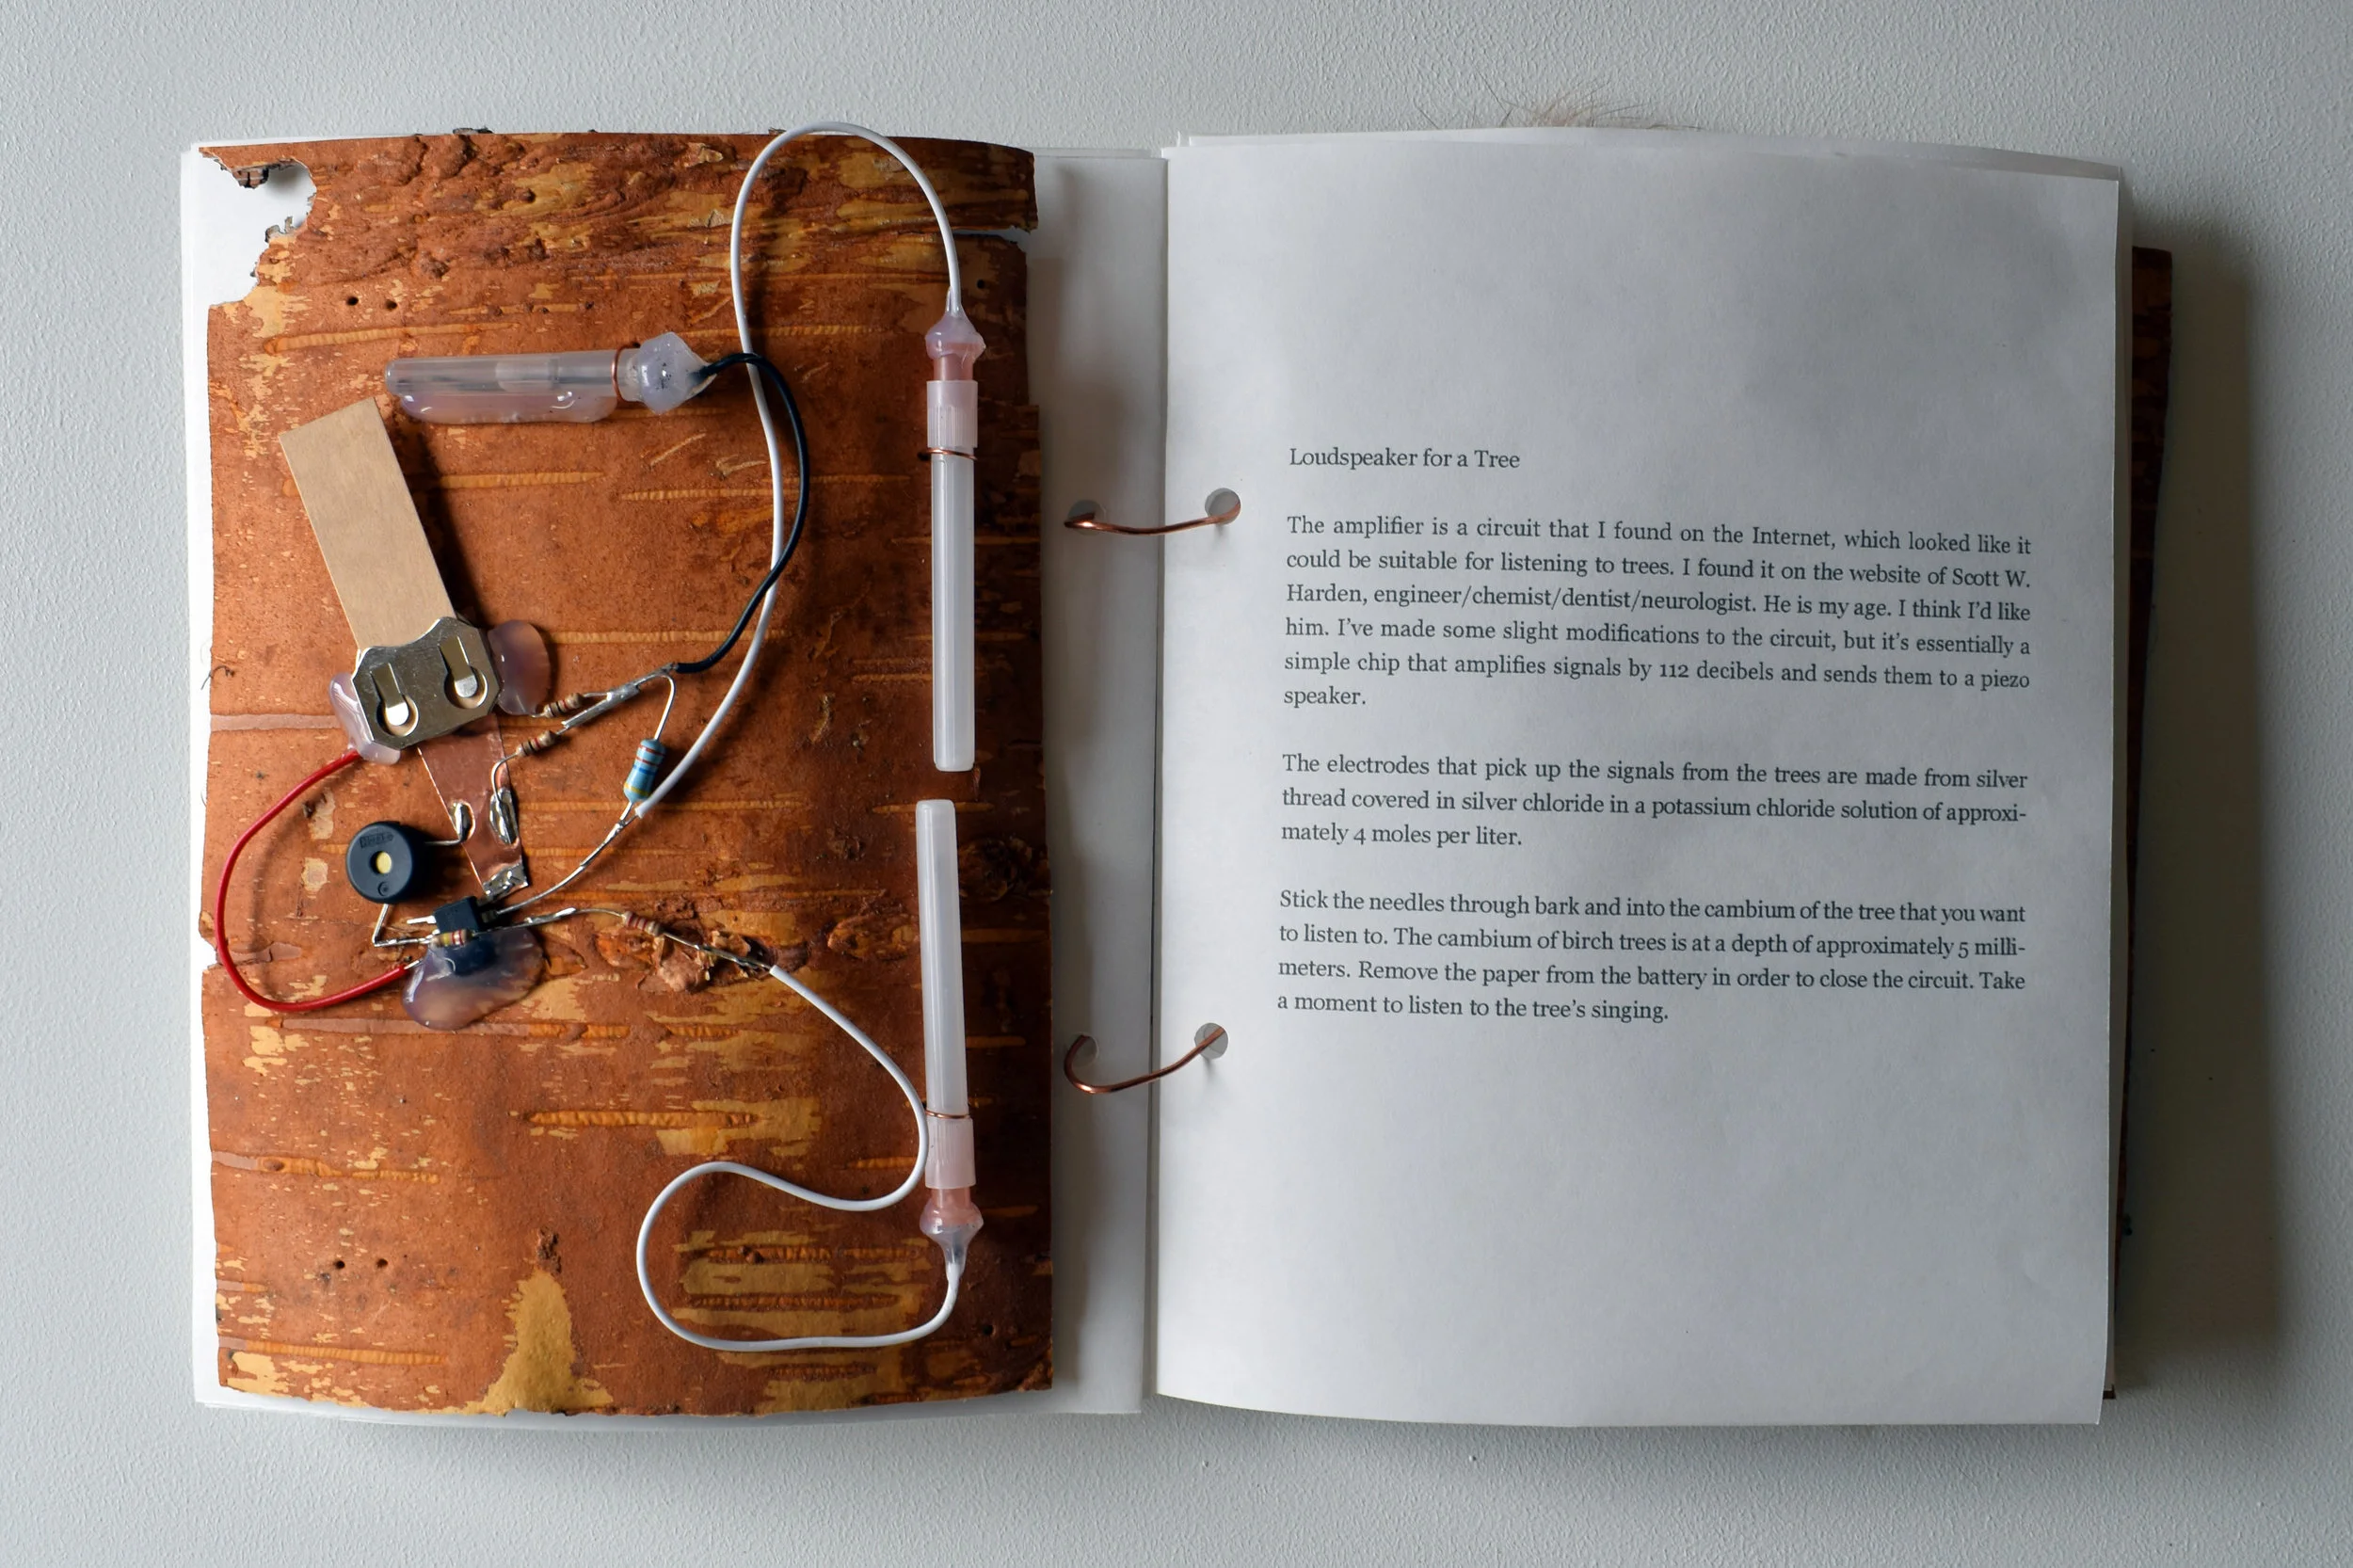 Loudspeaker for a Tree
The amplifier is a circuit that I found on the Internet, which looked like it
could be suitable for listening to trees. I found it on the website of Scott W.
Harden, engineer/chemist/dentist/neurologist. He is my age. I think I’d like
him. I’ve made some slight modifications to the circuit, but it’s essentially a
simple chip that amplifies signals by 112 decibels and sends them to a piezo
speaker.
The electrodes that pick up the signals from the trees are made from silver
thread covered in silver chloride in a potassium chloride solution of approxi-
mately 4 moles per liter.
Stick the needles through bark and into the cambium of the tree that you want
to listen to. The cambium of birch trees is at a depth of approximately 5 milli-
meters. Remove the paper from the battery in order to close the circuit. Take
a moment to listen to the tree’s singing.